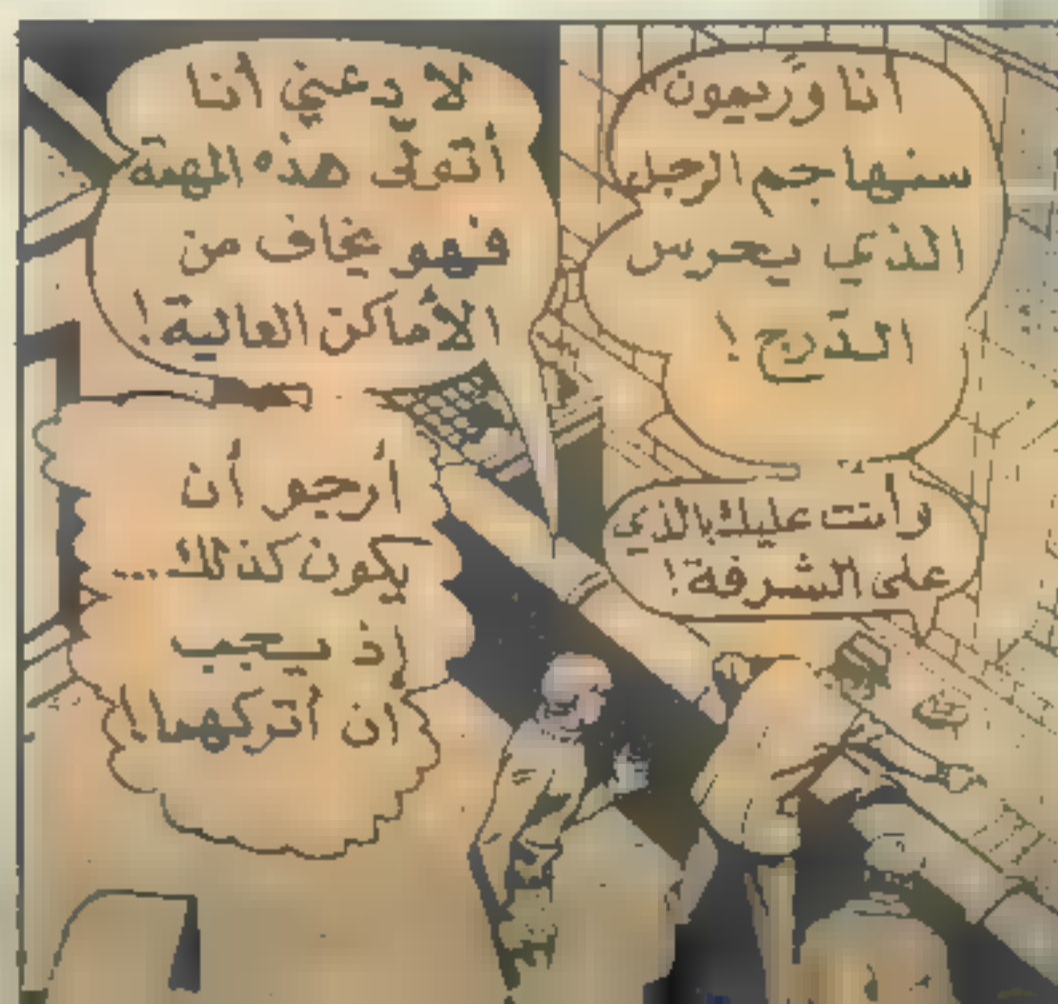 أنا وَريمون
سنهاجم الرجل
الذي يحرس
الدّرج !
وأنت عليك بالذي
على الشرفة !
لا دعني أنا
أتولّى هذه المهمة
فهو يخاف من
الأماكن العالية !
أرجو أن
يكون كذلك ...
إذ يجب
ان اتركهما !